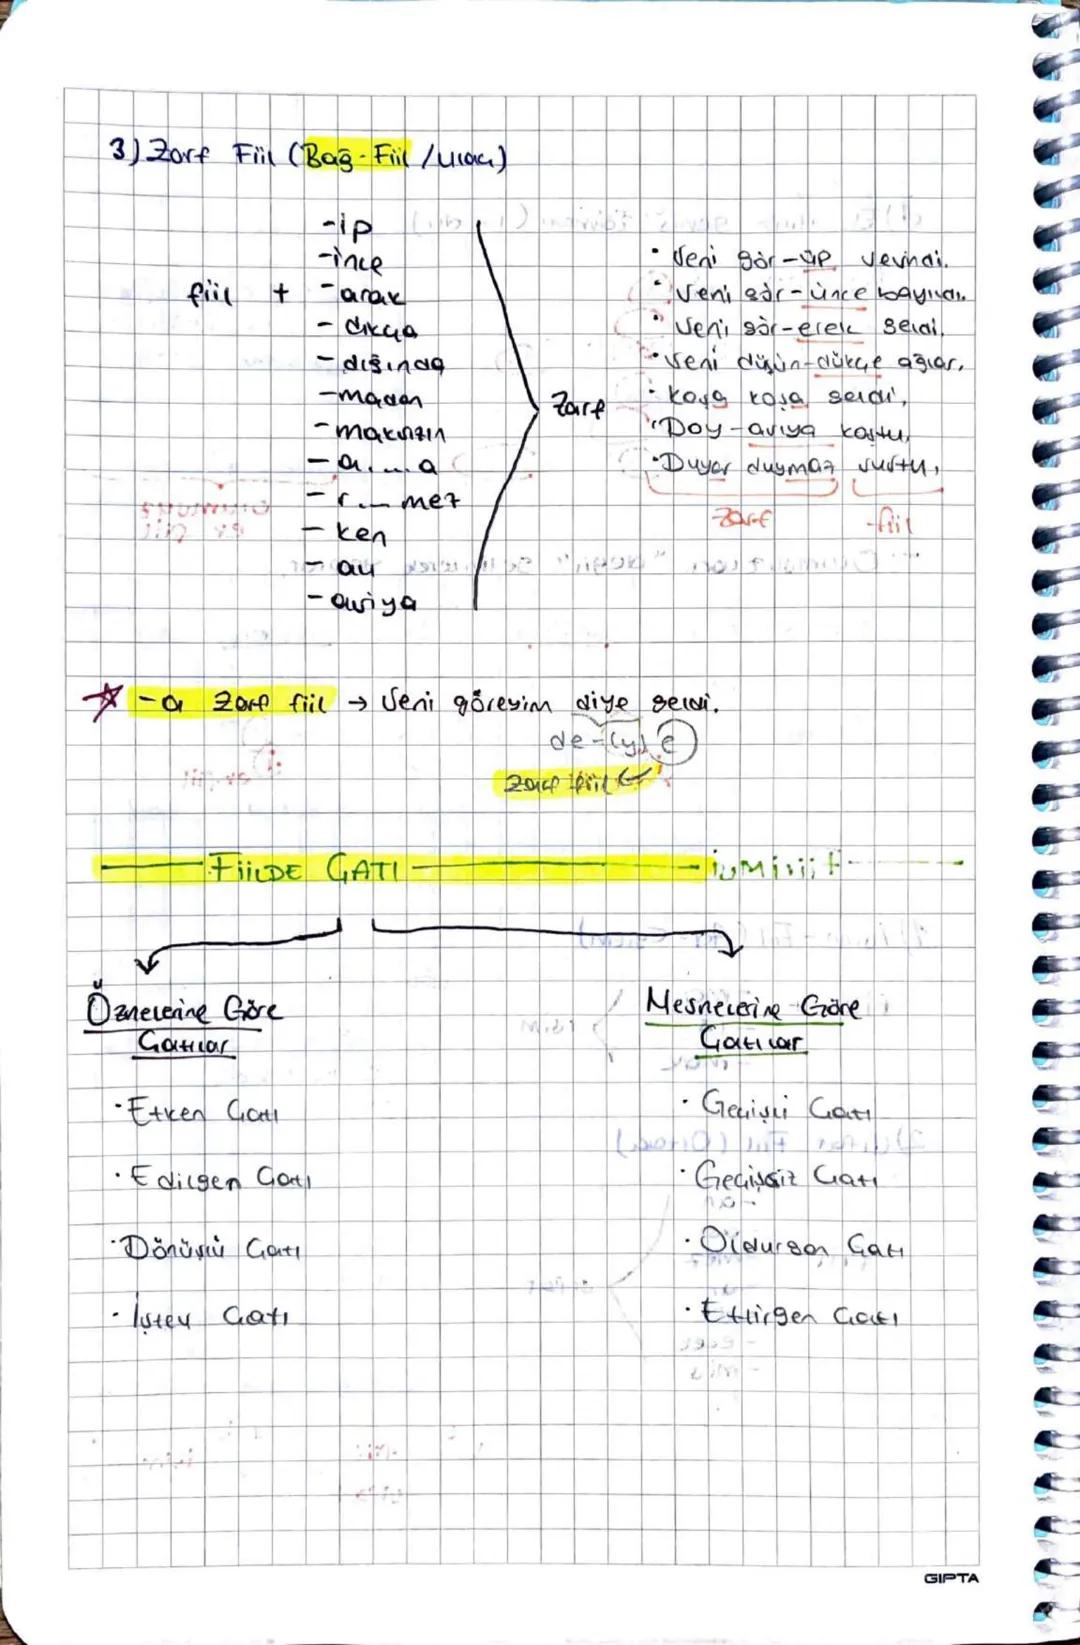 3) Zarf Fiil (Bağ-Fiil / Ulaç)
fiil +
-ip
-ince
-arak
-dıkça
-dığında
-madan
-maksızın
-a....a
-r... mez
-ken
-alı
-asıya
Zarf
• Seni gör-üp sevindi.
• Seni gör-ünce bayıldı.
• Seni gör-erek geldi.
• Seni düşün-dükçe ağlar.
• koşa koşa geldi.
• Doy-asıya koştu.
• Duyar duymaz sustu.
zarf fiil
☆ -a zarf fiil → Seni göreyim diye geldi.
de-(y) e
zarf fiil
FİİLDE ÇATI
Öznelerine Göre
Çatılar
• Etken Çatı
• Edilgen Çatı
• Dönüşlü Çatı
• İşteş Çatı
Nesnelerine Göre
Çatılar
• Geçişli Çatı
• Geçişsiz Çatı
• Oldurgan Çatı
• Ettirgen Çatı
GIPTA